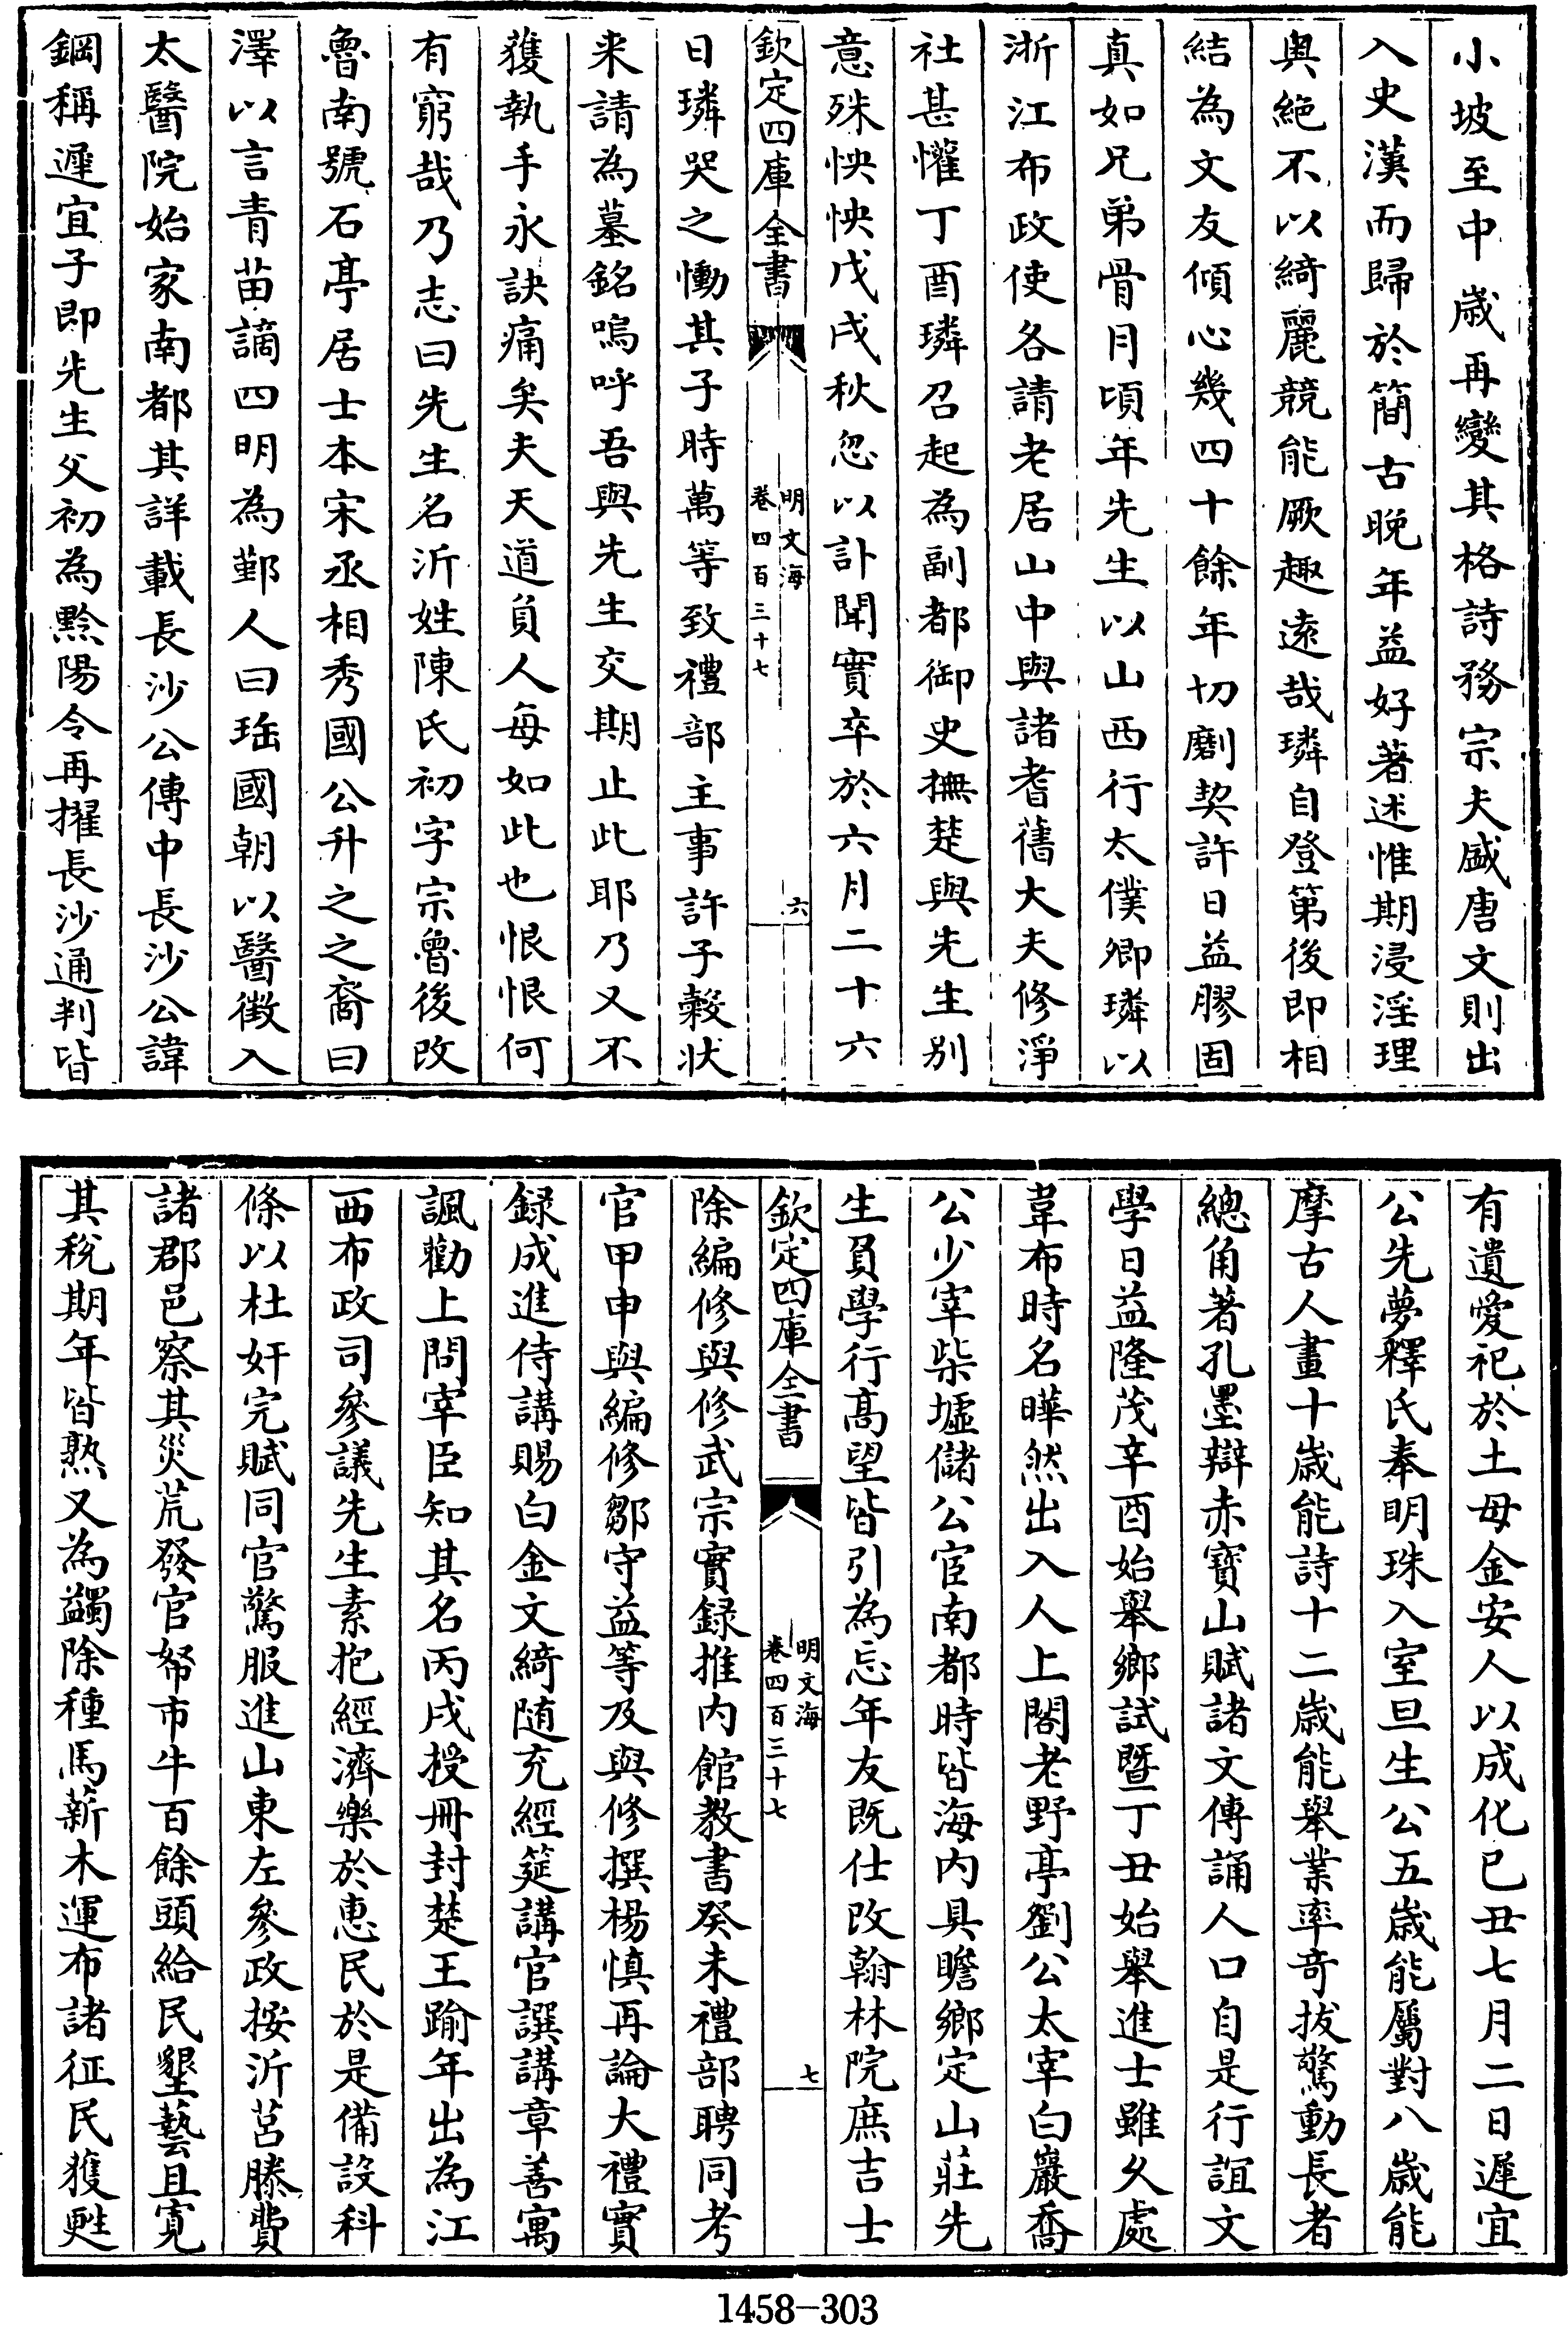 小坡至中歲再變其格詩務宗夫盛唐文則出
入史漢而歸於簡古晚年益好著述惟期浸淫理
奥絶不以綺麗競能厥趣遠哉璘自登第後即相
結為文友傾心幾四十餘年切劘契許日益膠固
真如兄弟骨月頃年先生以山西行太僕卿璘以
浙江布政使各請老居山中與諸耆舊大夫修淨
社甚懽丁酉璘召起為副都御史撫楚與先生别
意殊怏怏戊戌秋忽以訃聞實卒於六月二十六
欽定四庫全書
明文海
卷四百三十七
六
日璘哭之慟其子時萬等致禮部主事許子榖狀
来請為墓銘嗚呼吾與先生交期止此耶乃又不
獲執手永訣痛矣夫天道負人每如此也恨恨何
有窮哉乃志曰先生名沂姓陳氏初字宗魯後改
魯南號石亭居士本宋丞相秀國公升之之裔曰
澤以言青苗謫四明為鄞人曰珤國朝以醫徴入
太醫院始家南都其詳載長沙公傳中長沙公諱
鋼稱遲宜子即先生父初為黔陽令再擢長沙通判皆
有遺愛祀於土母金安人以成化己丑七月二日遲宜
公先夢釋氏奉明珠入室旦生公五歲能屬對八歲能
摩古人畫十歲能詩十二歲能舉業率奇拔驚動長者
總角著孔墨辯赤寶山賦諸文傳誦人口自是行誼文
學日益隆茂辛酉始舉鄉試暨丁丑始舉進士雖久處
韋布時名曄然出入人上閣老野亭劉公太宰白巖喬
公少宰柴墟儲公宦南都時皆海内具瞻鄉定山莊先
生員學行髙望皆引為忘年友既仕改翰林院庶吉士
欽定四庫全書
明文海
卷四百三十七
七
除編修與修武宗實録推内館教書癸未禮部聘同考
官甲申與編修鄒守益等及與修撰楊慎再論大禮實
録成進侍講賜白金文綺随充經筵講官譔講章善寓
諷勸上問宰臣知其名丙戌授冊封楚王踰年出為江
西布政司參議先生素抱經濟樂於惠民於是備設科
條以杜奸完賦同官驚服進山東左參政按沂莒滕費
諸郡邑察其災荒發官帑市牛百餘頭給民墾藝且寛
其稅期年皆熟又為蠲除種馬薪木運布諸征民獲甦
1458-303